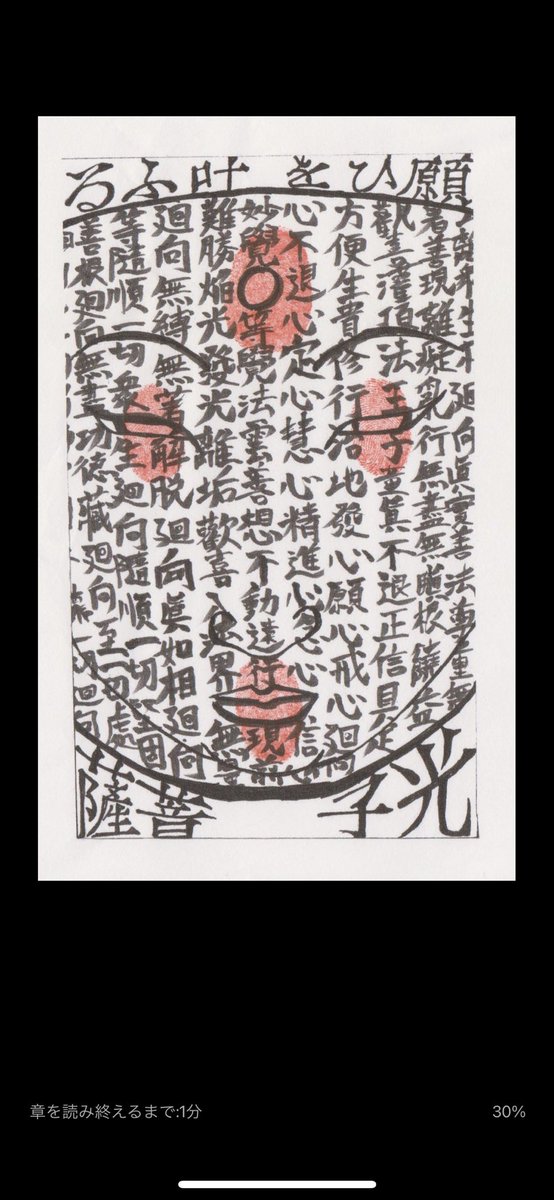 願ひを叶ふる
衆生不廻向眞實善法尊重無
著善現離癡乱行無盡無瞋根饒益
灌頂法王子童眞不退正信具足
方便生貴修行治地發心願心戒心廻向
心不退心定心慧心精進心念心信心
妙覺等覺法雲善想不動遠行現前
難勝焔光發光離垢歡喜法界無量
廻向無縛無著解脱廻向眞如相廻向
等隨順一切衆生廻向隨順一切堅固
善根廻向無盡功徳藏廻向至一切處
廻向
光子菩薩
章を読み終えるまで:1分
30%